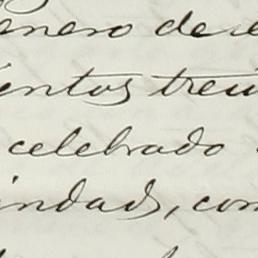 enero de
ientos trei
celebrado
indad, con